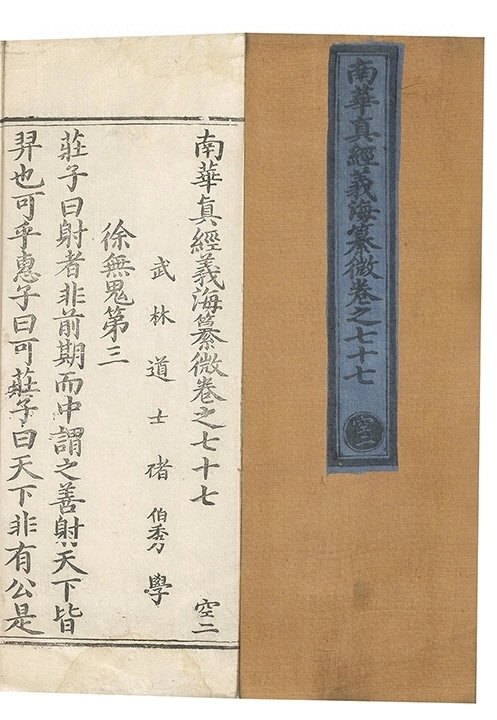 南華真經義海纂微卷之七十七
空二
南華真經義海纂微卷之七十七 空二
武林道士褚伯秀學
徐無鬼第三
莊子曰射者非前期而中謂之善射天下皆
羿也可乎惠子曰可莊子曰天下非有公是